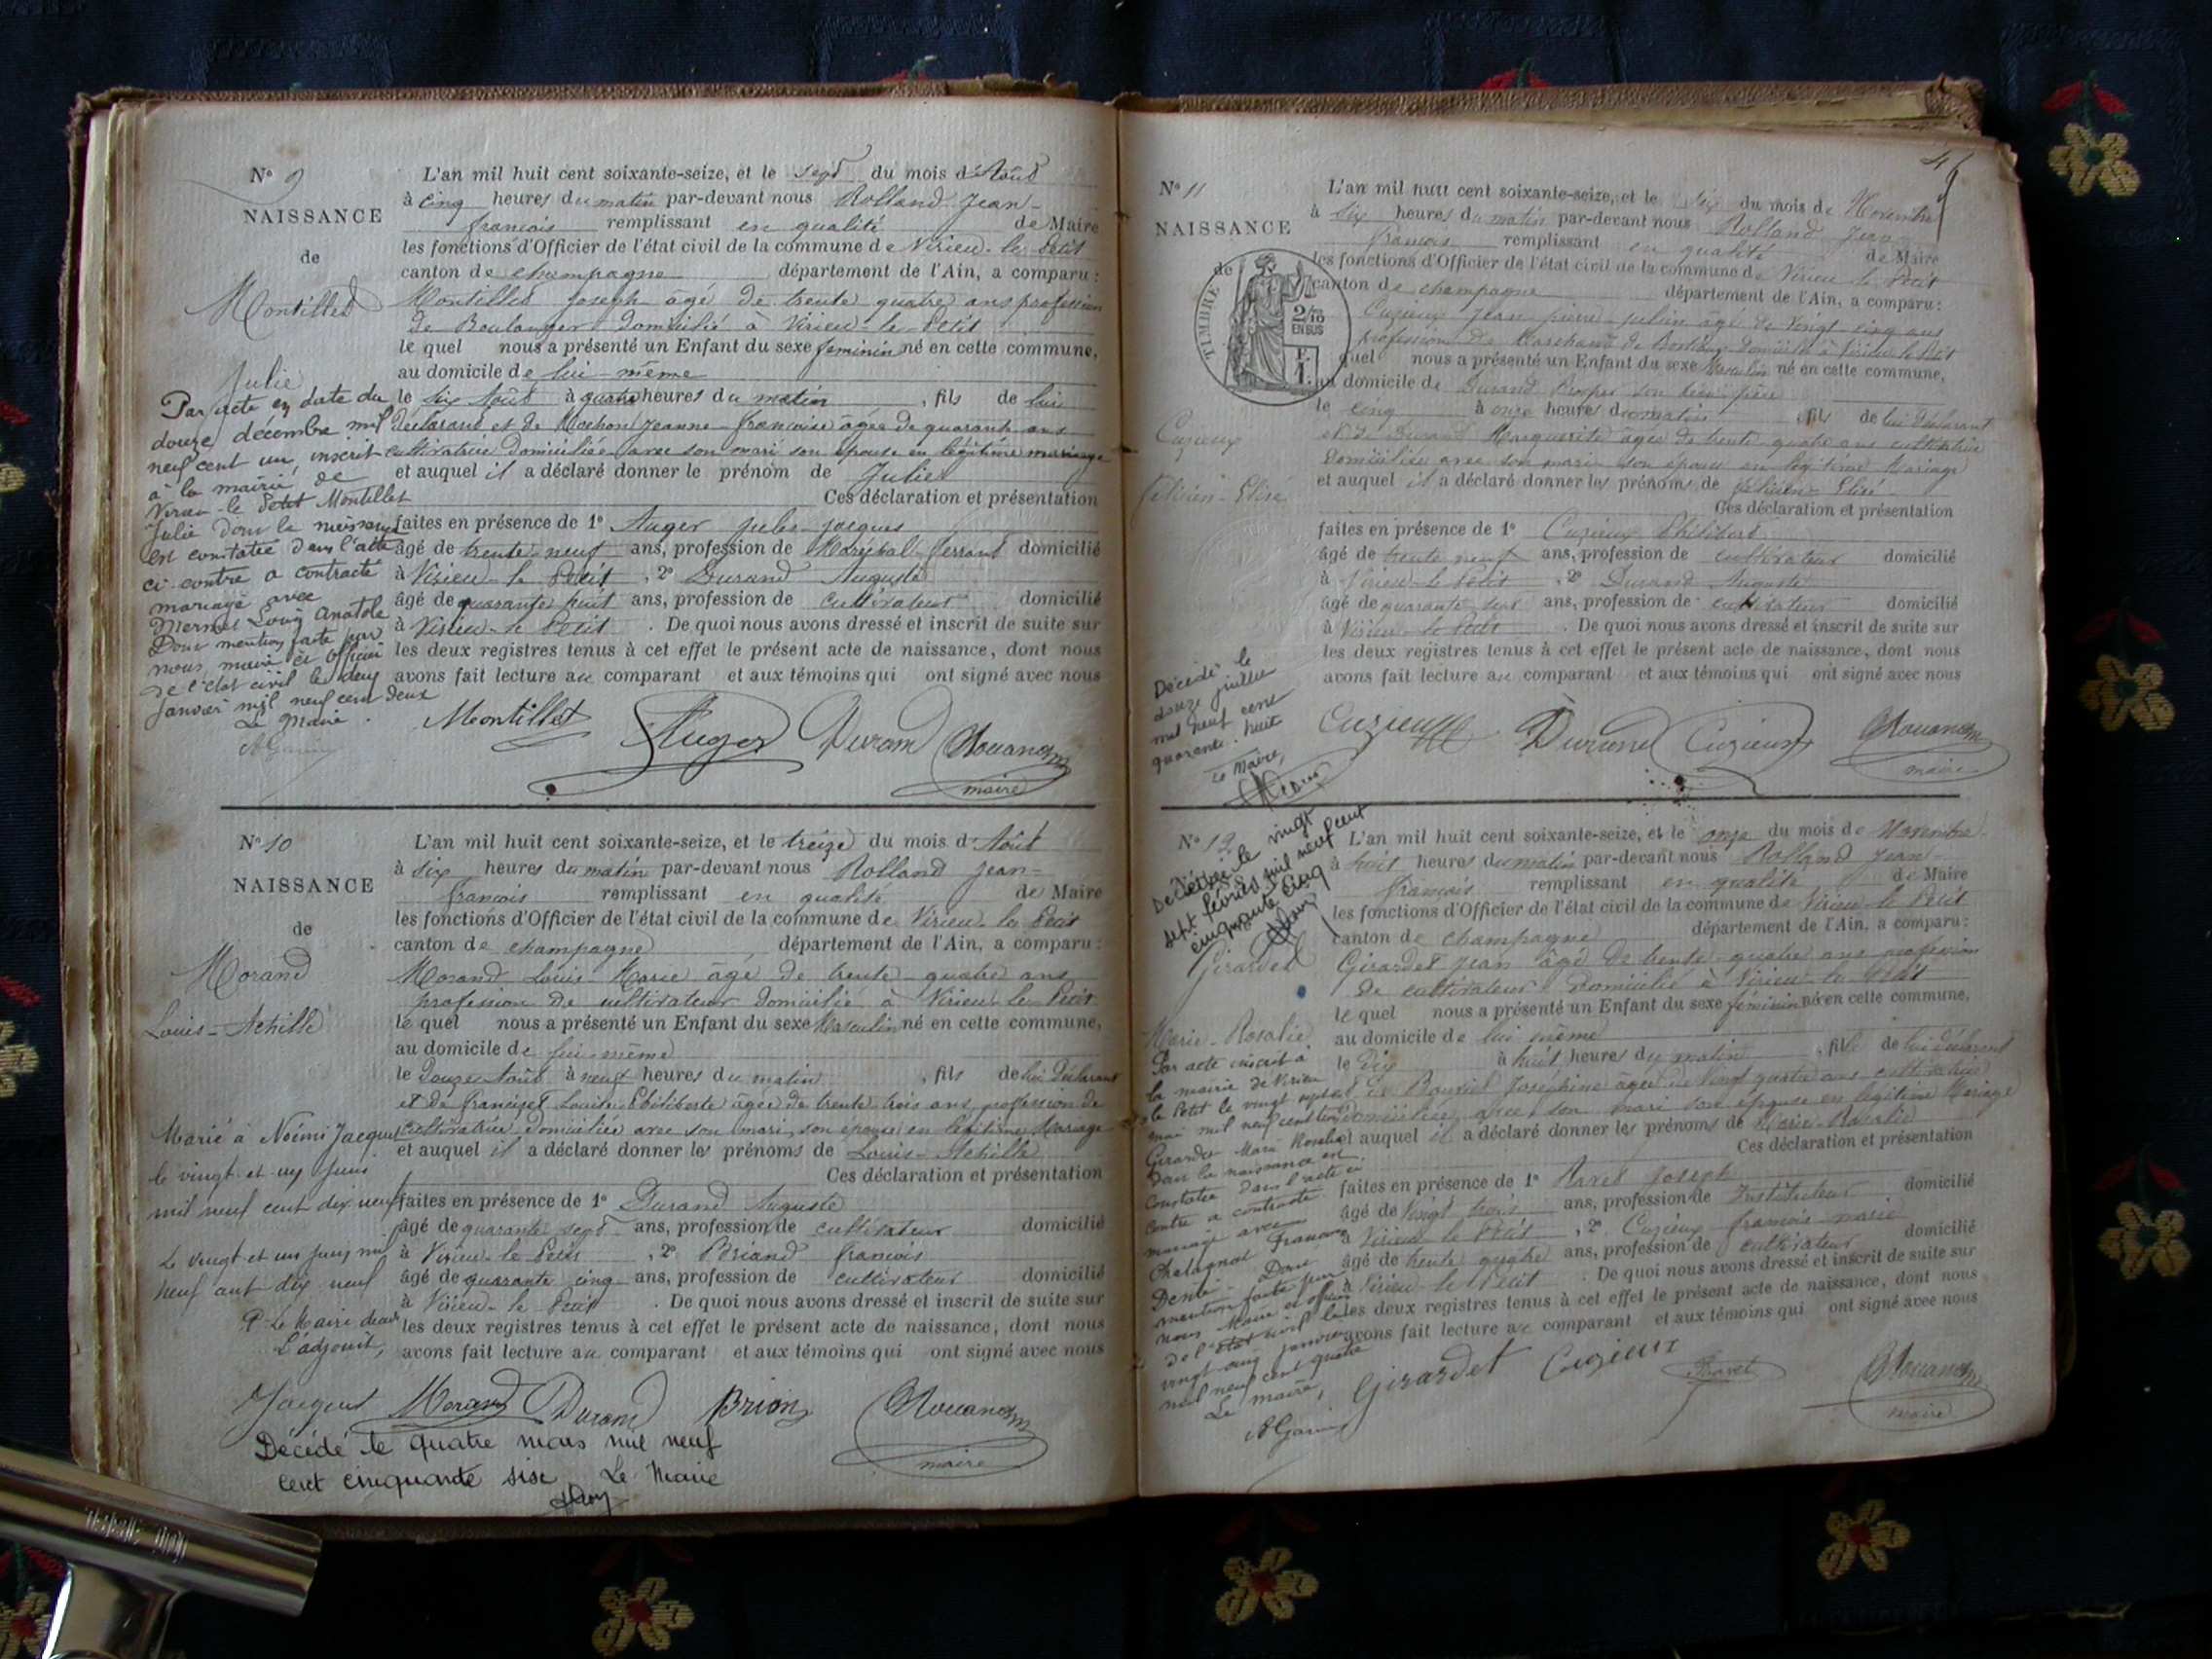 N° 9
NAISSANCE
de
Montillet
Julie
Par acte en date du
douze décembre mil
neuf cent un, inscrit
à la mairie de
Virieu-le Petit Montillet
Julie dont la naissance
est constatée dans l'acte
ci contre a contracté
mariage avec
Louis Anatole
Dont mention faite par
nous, maire et officier
de l'état civil le deux
Janvier mil neuf cent deux
Le Maire.
L'an mil huit cent soixante-seize, et le sept du mois d'Août
à cinq heures du matin par-devant nous Rolland Jean-
françois remplissant en qualité de Maire
les fonctions d'Officier de l'état civil de la commune de Virieu-le-Petit
canton de champagne département de l'Ain, a comparu :
Montillet Joseph âgé de trente quatre ans profession
de Boulanger domicilié à Virieu-le-Petit
le quel nous a présenté un Enfant du sexe feminin né en cette commune,
au domicile de lui-même
le six Août à quatre heures du matin, fils de lui
déclarant et de Mochon Jeanne-francoise âgée de quarante ans
cultivatrice domiciliée avec son mari son épouse en légitime mariage
et auquel il a déclaré donner le prénom de Julie
Ces déclaration et présentation
faites en présence de 1° Auger Jules-Jacques
âgé de trente-neuf ans, profession de Maréchal-ferrant domicilié
à Virieu-le Petit, 2° Durand Auguste
âgé de quarante huit ans, profession de cultivateur domicilié
à Virieu-le Petit. De quoi nous avons dressé et inscrit de suite sur
les deux registres tenus à cet effet le présent acte de naissance, dont nous
avons fait lecture au comparant et aux témoins qui ont signé avec nous
Montillet Auger Durand
maire
N° 10
NAISSANCE
de
Morand
Louis-Achille
Marié à Noémi Jacquet
le vingt et un Juin
mil neuf cent dix neuf
Le vingt et un Juin mil
neuf cent dix neuf
L'adjoint,
Jacquet
L'an mil huit cent soixante-seize, et le treize du mois d'Août
à six heures du matin par-devant nous Rolland Jean-
françois remplissant en qualité de Maire
les fonctions d'Officier de l'état civil de la commune de Virieu-le Petit
canton de champagne département de l'Ain, a comparu :
Morand Louis-Marie âgé de trente-quatre ans
profession de cultivateur domicilié à Virieu-le Petit
le quel nous a présenté un Enfant du sexe Masculin né en cette commune,
au domicile de lui-même
le Douze Août à neuf heures du matin, fils de lui déclarant
et de franciset Louise-Philiberte âgée de trente-trois ans profession de
cultivatrice domiciliée avec son mari, son épouse en légitime Mariage
et auquel il a déclaré donner les prénoms de Louis-Achille
Ces déclaration et présentation
faites en présence de 1° Durand Auguste
âgé de quarante sept ans, profession de cultivateur domicilié
à Virieu-le Petit, 2° Briand françois
âgé de quarante cinq ans, profession de cultivateur domicilié
à Virieu-le Petit. De quoi nous avons dressé et inscrit de suite sur
les deux registres tenus à cet effet le présent acte de naissance, dont nous
avons fait lecture au comparant et aux témoins qui ont signé avec nous
Morand Durand Brion
maire
Décédé le quatre mars mil neuf
cent cinquante six Le Maire
N° 11
NAISSANCE
de
TIMBRE
2/10
EN SUS
Cuzieux
Elisé
Décédé le
douze juillet
mil neuf cent
quarante. huit
Le Maire,
L'an mil huit cent soixante-seize, et le six du mois de Novembre
à six heures du matin par-devant nous Rolland Jean-
françois remplissant en qualité de Maire
les fonctions d'Officier de l'état civil de la commune de Virieu le Petit
canton de champagne département de l'Ain, a comparu :
Cuzieux Jean pierre julien âgé de vingt-cinq ans
profession de Marchand de Bestiaux domicilié à Virieu le Petit
quel nous a présenté un Enfant du sexe Masculin né en cette commune,
au domicile de Durand Prosper son beau-père
le cinq à onze heures du matin, fils de lui déclarant
et de Durand Marguerite âgée de trente quatre ans cultivatrice
domiciliée avec son mari son épouse en légitime Mariage
et auquel il a déclaré donner les prénoms de Elisé
Ces déclaration et présentation
faites en présence de 1° Cuzieux Philibert
âgé de trente neuf ans, profession de cultivateur domicilié
à Virieu-le Petit, 2° Durand Auguste
âgé de quarante sept ans, profession de cultivateur domicilié
à Virieu-le Petit. De quoi nous avons dressé et inscrit de suite sur
les deux registres tenus à cet effet le présent acte de naissance, dont nous
avons fait lecture au comparant et aux témoins qui ont signé avec nous
Cuzieux Durand Cuzieux
maire
N° 12
Décédée le vingt
sept février mil neuf cent
cinquante cinq
Girardet
Marie-Rosalie
Par acte inscrit à
la mairie de Virieu
le Petit le vingt sept
mai mil neuf cent trois
Girardet Marie Rosalie
dont la naissance est
constatée dans l'acte ci
contre a contracté
mariage avec
Chatagnat François
Dont
mention faite par
nous Maire et officier
de l'état civil le
vingt cinq janvier
mil neuf cent quatre
Le maire,
L'an mil huit cent soixante-seize, et le onze du mois de Novembre
à huit heures du matin par-devant nous Rolland Jean-
françois remplissant en qualité de Maire
les fonctions d'Officier de l'état civil de la commune de Virieu-le Petit
canton de champagne département de l'Ain, a comparu :
Girardet Jean âgé de trente-quatre ans profession
de cultivateur domicilié à Virieu-le Petit
le quel nous a présenté un Enfant du sexe féminin né en cette commune,
au domicile de lui même
le Dix à huit heures du matin, fils de lui déclarant
et de Josephine âgée de vingt quatre ans cultivatrice
domiciliée avec son mari son épouse en légitime Mariage
et auquel il a déclaré donner les prénoms de Marie-Rosalie
Ces déclaration et présentation
faites en présence de 1° Joseph
âgé de vingt trois ans, profession de Instituteur domicilié
à Virieu le Petit, 2° Cuzieux françois marie
âgé de trente quatre ans, profession de cultivateur domicilié
à Virieu-le Petit. De quoi nous avons dressé et inscrit de suite sur
les deux registres tenus à cet effet le présent acte de naissance, dont nous
avons fait lecture au comparant et aux témoins qui ont signé avec nous
Girardet Cuzieux
maire